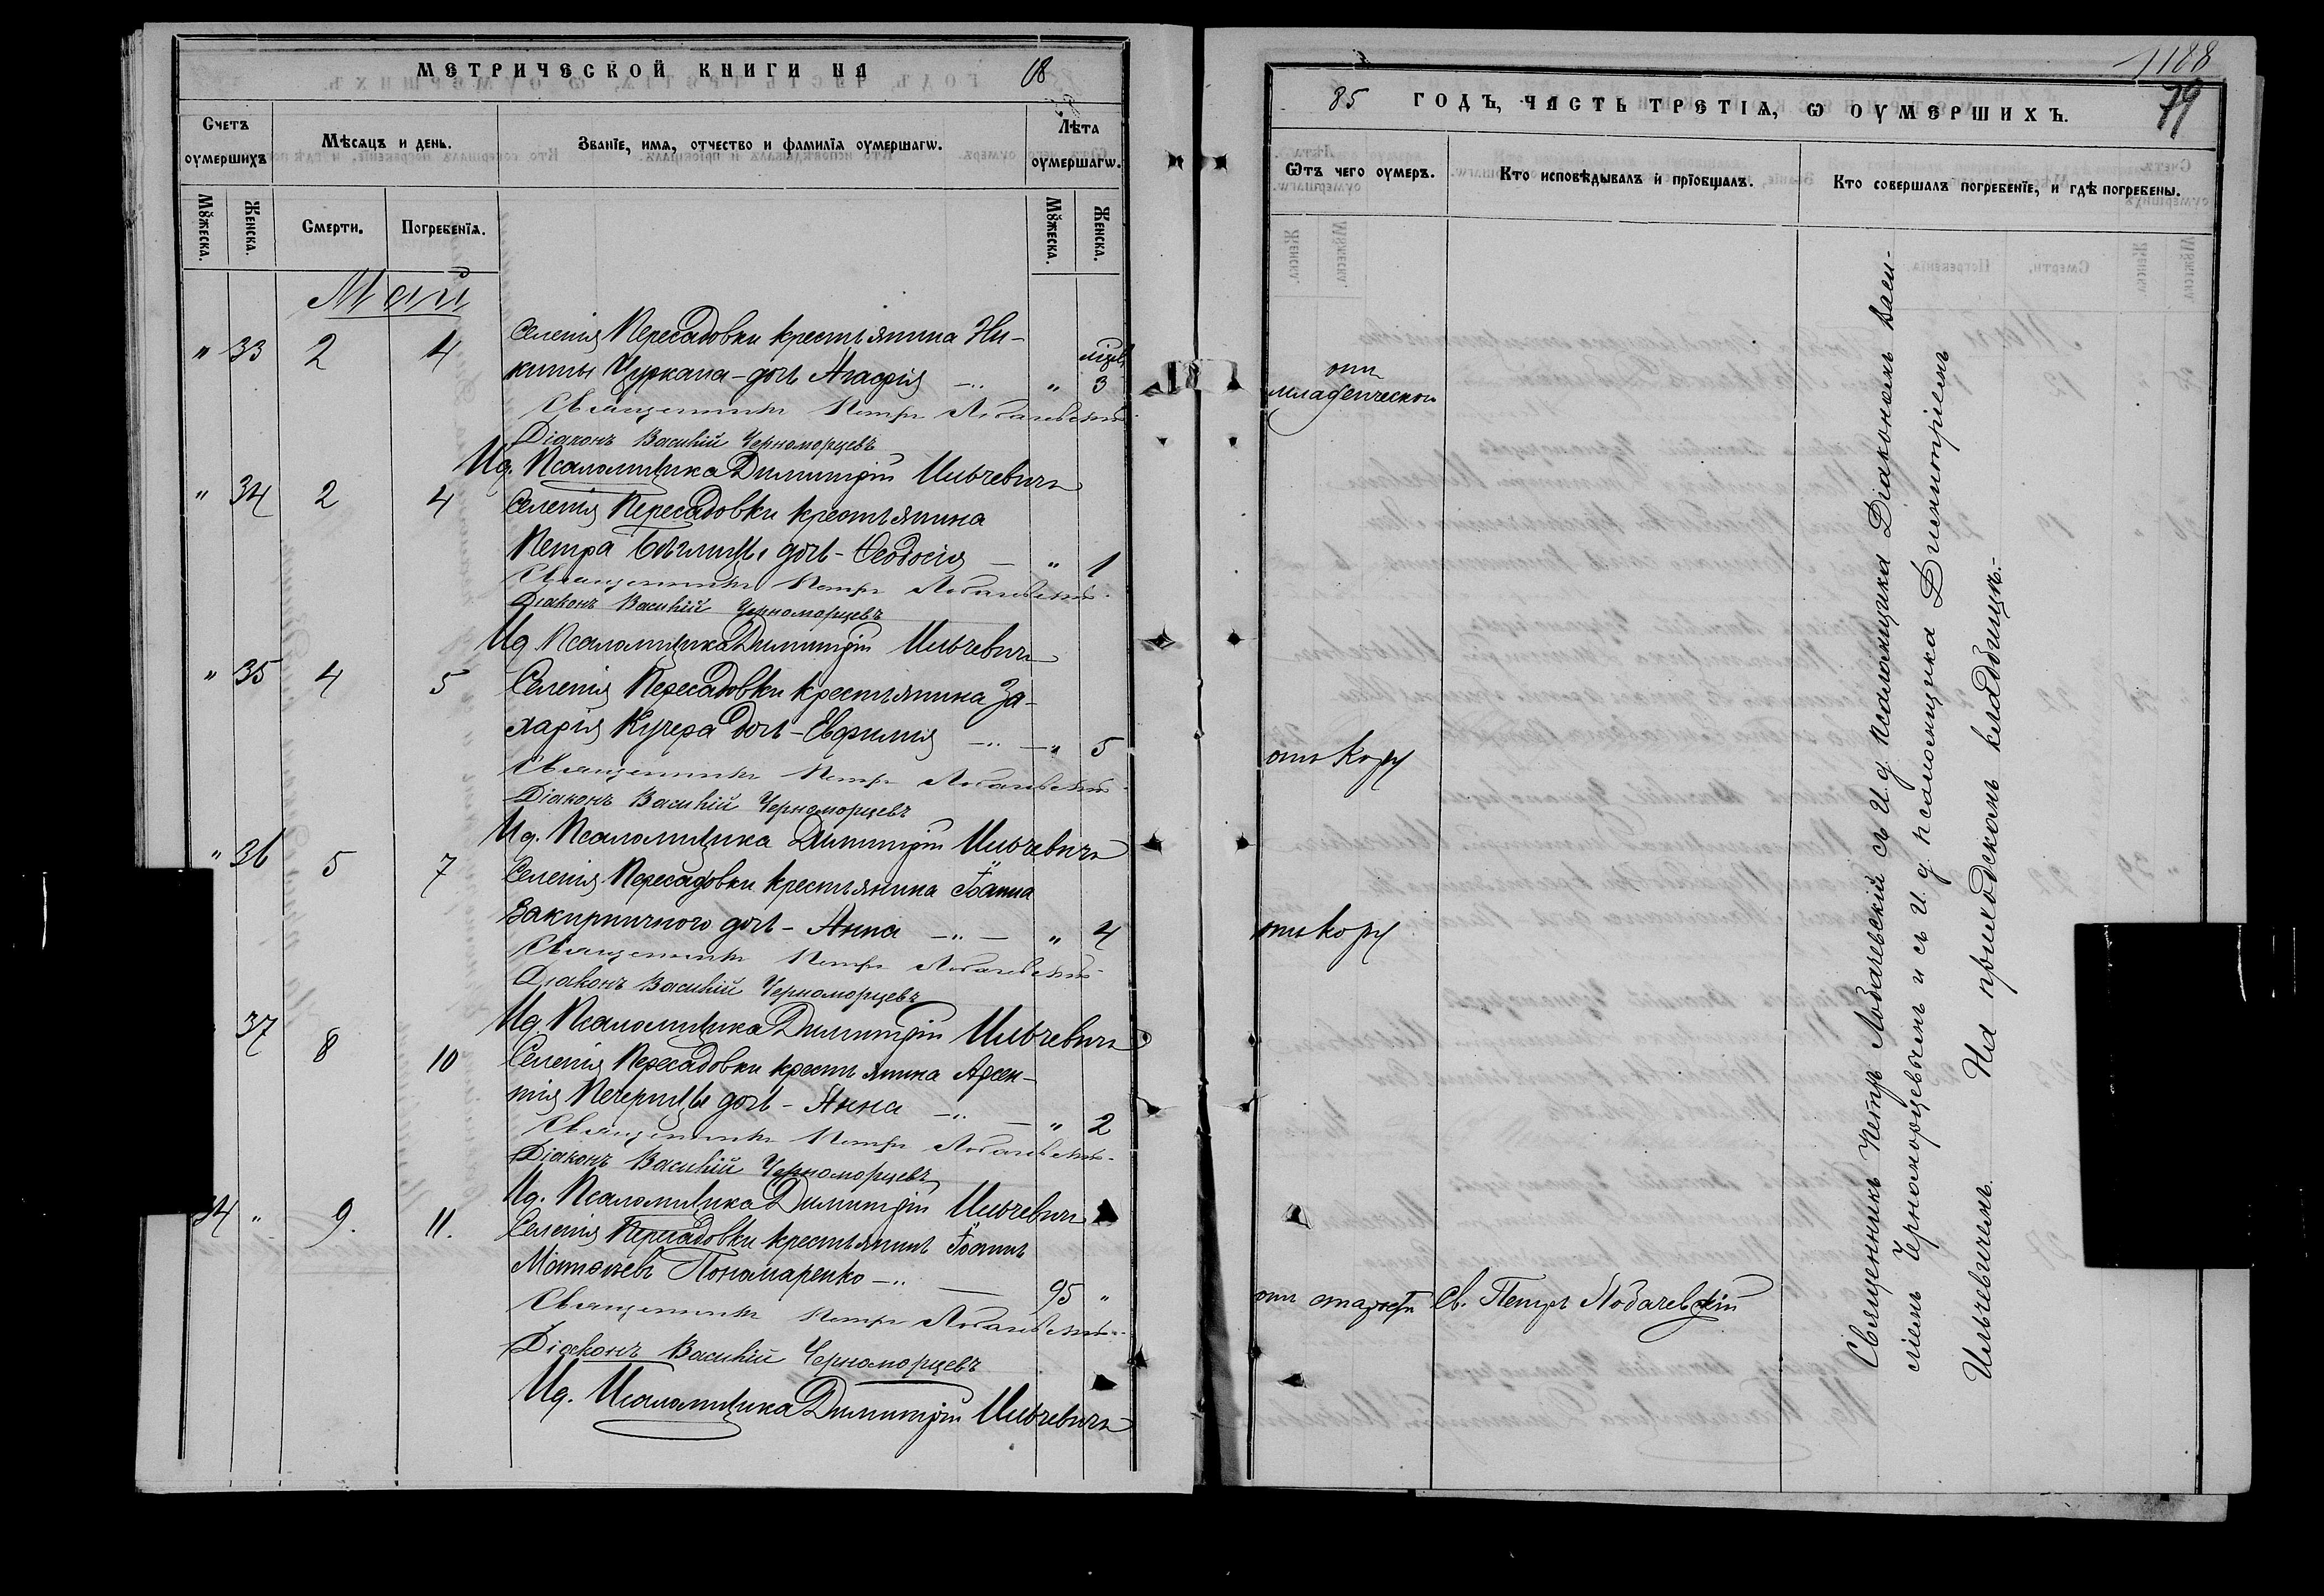 МЕТРИЧЕСКОЙ КНИГИ НА 18
Счетъ оумершихъ
Мѣсяцъ и день.
Званїе, имя, отчество и фамилїя оумершагѡ.
Лѣта оумершагѡ.
Мꙋжеска.
Женска.
Смерти.
Погребенїя.
Мꙋжеска.
Женска.
Май
" 33 2 4 Селенія Пересадовки крестьянина Ни-
киты Цуркана - дочь Агафія " 3
Священникъ Петръ Лобачевскій
Діаконъ Василій Черноморцевъ
Ид. Псаломщика Димитрій Ильчевичъ
" 34 2 4 Селенія Пересадовки крестьянина
Петра дочь - Ѳеодосія " 1
Священникъ Петръ Лобачевскій
Діаконъ Василій Черноморцевъ
Ид. Псаломщика Димитрій Ильчевичъ
" 35 4 5 Селенія Пересадовки крестьянина За-
харія Кучера дочь - Евфимія " 5
Священникъ Петръ Лобачевскій
Діаконъ Василій Черноморцевъ
Ид. Псаломщика Димитрій Ильчевичъ
" 36 5 7 Селенія Пересадовки крестьянина Іоанна
Закирпичного дочь - Анна " 4
Священникъ Петръ Лобачевскій
Діаконъ Василій Черноморцевъ
Ид. Псаломщика Димитрій Ильчевичъ
37 8 10 Селенія Пересадовки крестьянина Арсен-
тія Печерицы дочь - Анна " 2
Священникъ Петръ Лобачевскій
Діаконъ Василій Черноморцевъ
Ид. Псаломщика Димитрій Ильчевичъ
34 " 9. 11. Селенія Пересадовки крестьянинъ Іоаннъ
Матѳеевъ Пономаренко 95 "
Священникъ Петръ Лобачевскій
Діаконъ Василій Черноморцевъ
Ид. Псаломщика Димитрій Ильчевичъ
1188
79
85 ГОДЪ, ЧАСТЬ ТРЕТІЯ, Ѡ ОУМЕРШИХЪ.
Ѿтъ чего оумеръ.
Кто исповѣдывалъ и прїобщалъ.
Кто совершалъ погребенїе, и гдѣ погребены.
отъ
младенческой
отъ кори
отъ кори
отъ старости Св. Петръ Лобачевскій
Священникъ Петръ Лобачевскій съ И. д. псаломщика Діакономъ Васи-
ліемъ Черноморцевымъ и съ И. д. псаломщика Димитріемъ
Ильчевичемъ. На приходскомъ кладбищѣ.-